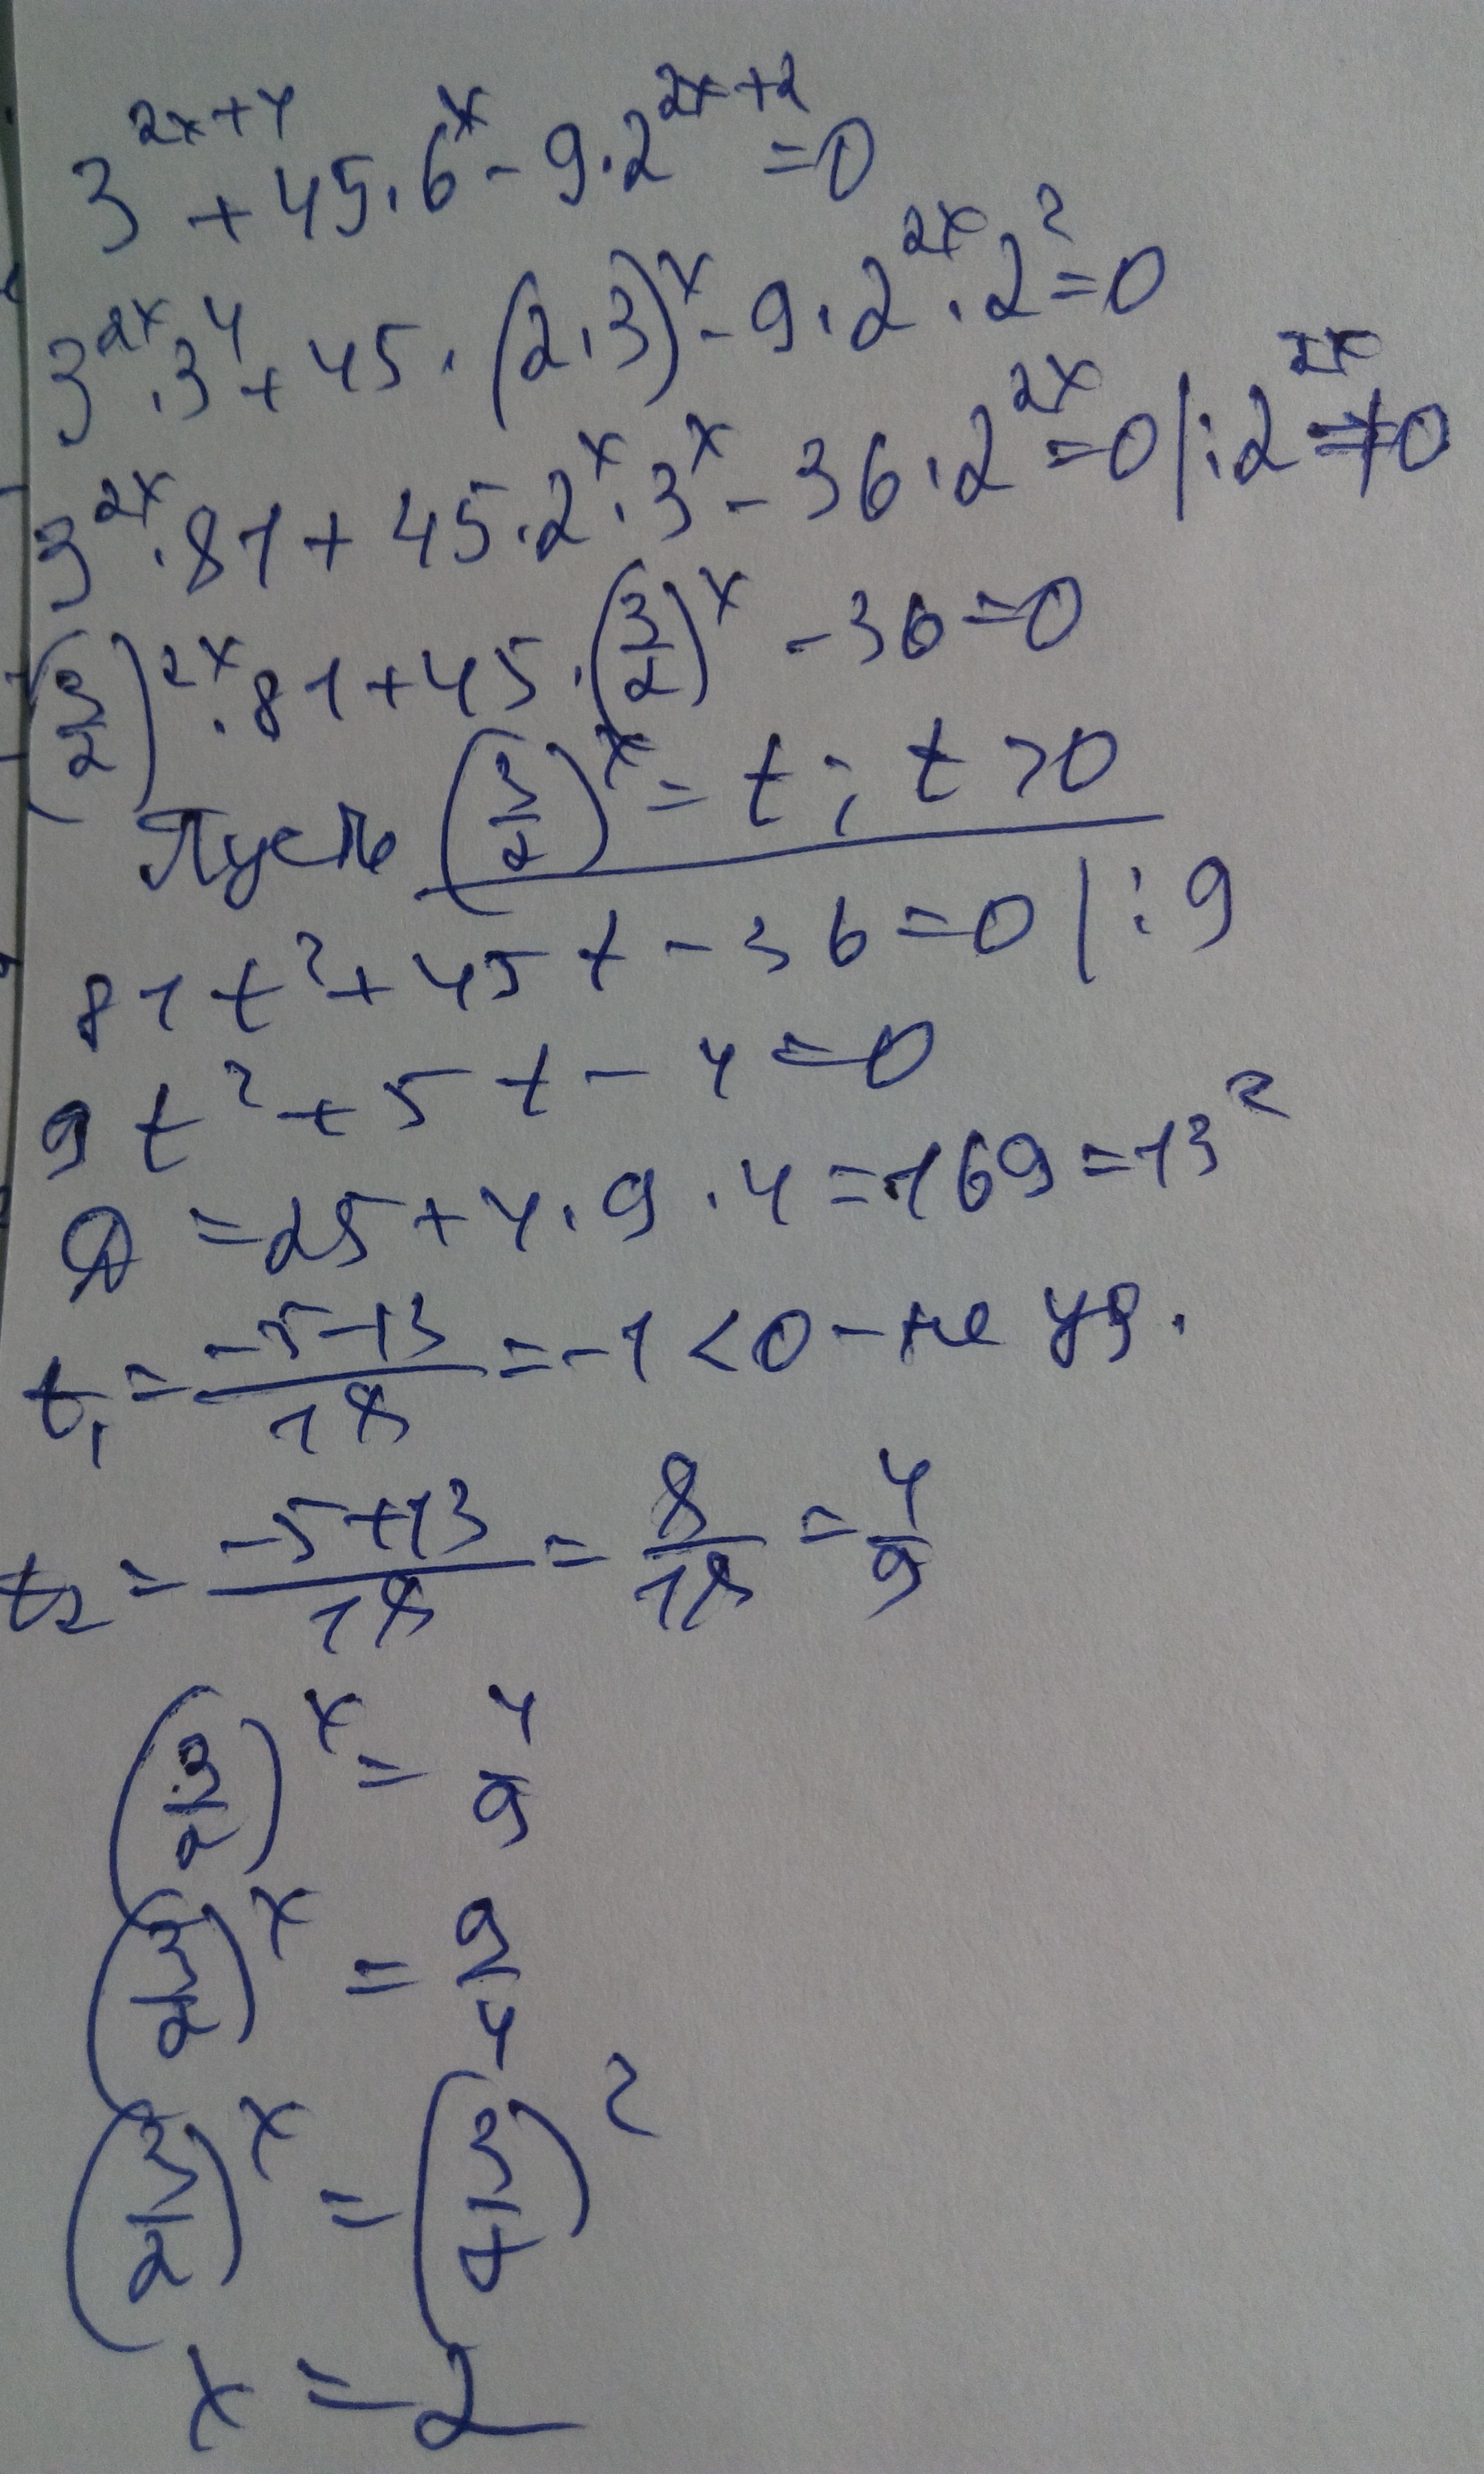 3^{2x+4} + 45 · 6^x - 9 · 2^{2x+2} = 0
3^{2x} · 3^4 + 45 · (2 · 3)^x - 9 · 2^{2x} · 2^2 = 0
3^{2x} · 81 + 45 · 2^x · 3^x - 36 · 2^{2x} = 0 | : 2^{2x} ≠ 0
(3/2)^{2x} · 81 + 45 · (3/2)^x - 36 = 0
Пусть (3/2)^x = t ; t > 0
81t^2 + 45t - 36 = 0 | : 9
9t^2 + 5t - 4 = 0
D = 25 + 4 · 9 · 4 = 169 = 13^2
t_1 = (-5-13)/18 = -1 < 0 - не уд.
t_2 = (-5+13)/18 = 8/18 = 4/9
(3/2)^x = 4/9
(3/2)^x = 9/4
(3/2)^x = (3/4)^2
x = 2